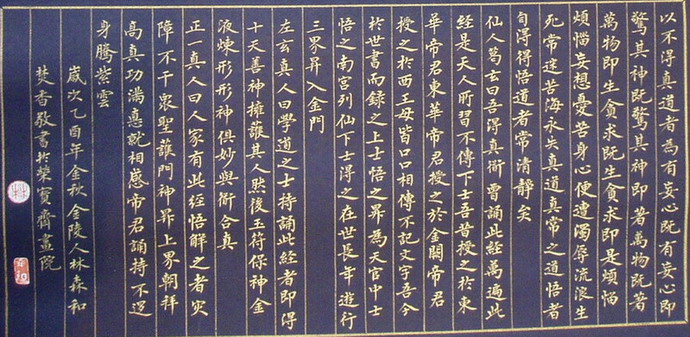 以不得真道者為有妄心既有妄心即
驚其神既驚其神即著萬物既著
萬物即生貪求既生貪求即是煩惱
煩惱妄想憂苦身心便遭濁辱流浪生
死常沉苦海永失真道真常之道悟者
自得得悟道者常清靜矣
仙人葛玄曰吾得真衟曾誦此經萬遍此
經是天人所習不傳下士吾昔授之於東
華帝君東華帝君授之於金闕帝君
授之於西王母皆口口相傳不記文字吾今
於世書而錄之上士悟之昇為天官中士
悟之南宮列仙下士得之在世長年遊行
三界昇入金門
左玄真人曰學道之士持誦此經者即得
十天善神擁護其人然後玉符保神金
液煉形形神俱妙與衟合真
正一真人曰人家有此經悟解之者災
障不干眾聖護門神昇上界朝拜
高真功滿悳就相感帝君誦持不退
身騰紫雲
歲次乙酉年金秋金陵人林森和
焚香敬書於榮寶齋畫院